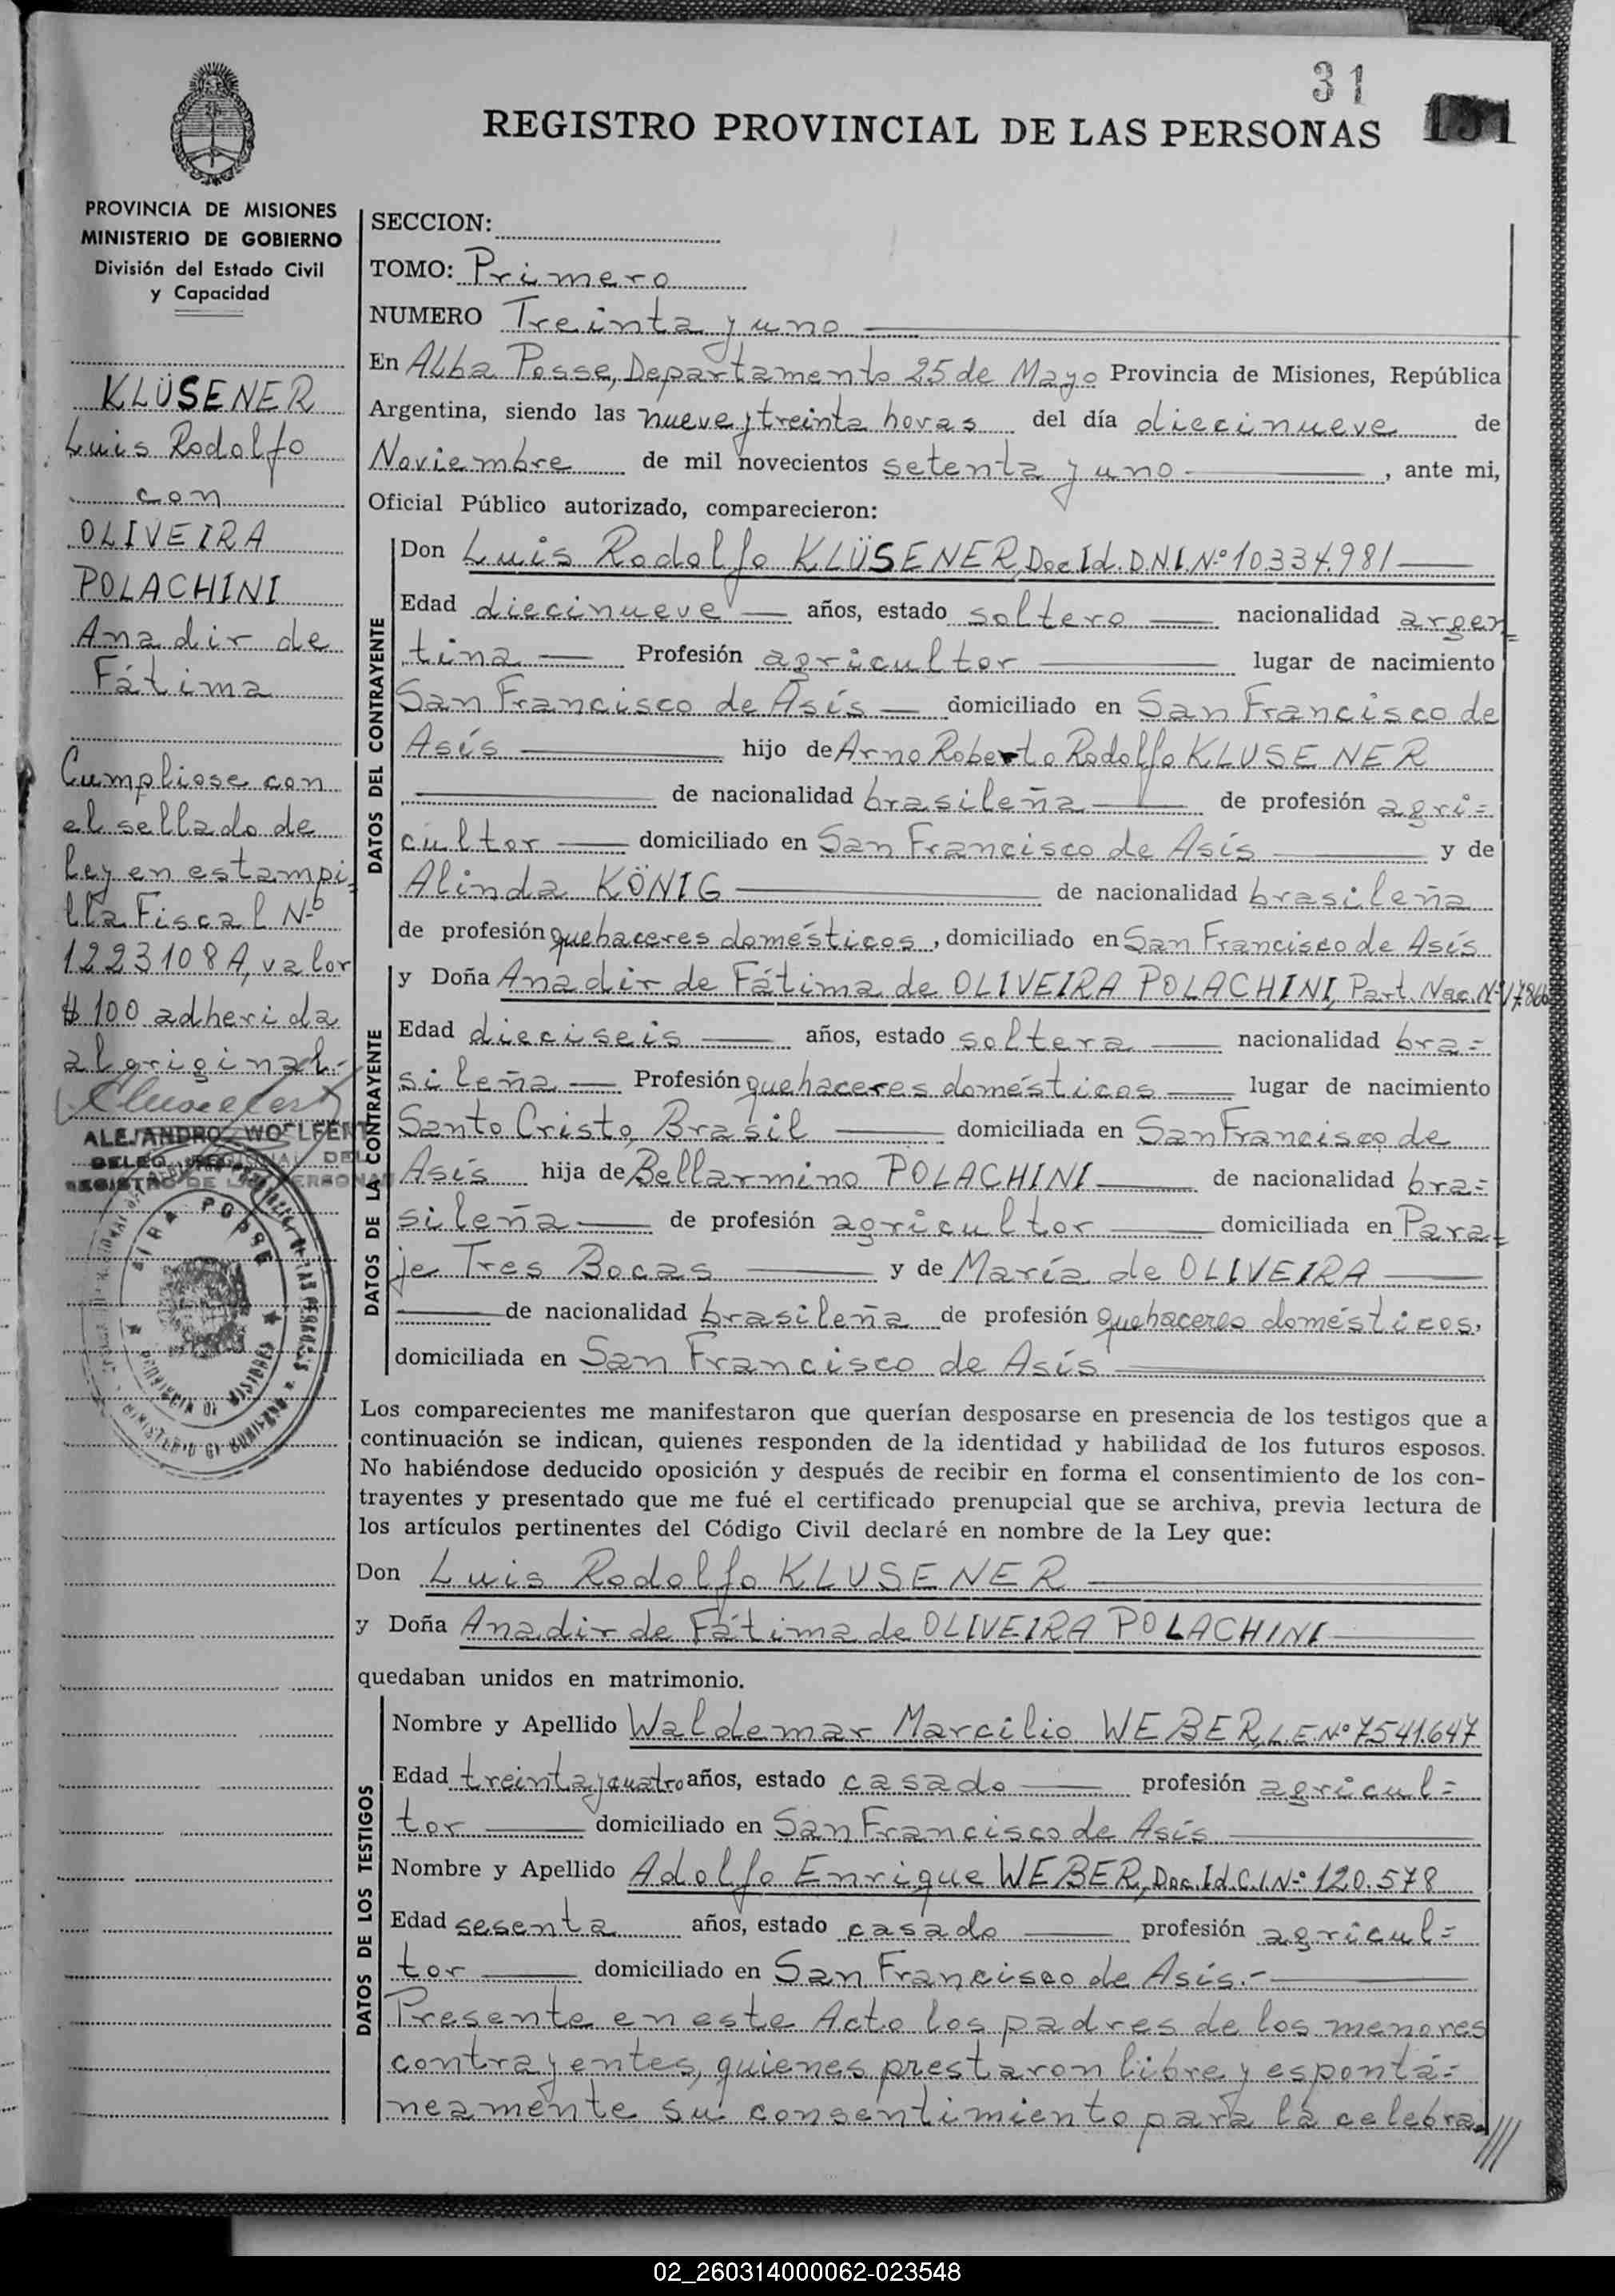 31
REGISTRO PROVINCIAL DE LAS PERSONAS 151
PROVINCIA DE MISIONES
MINISTERIO DE GOBIERNO
División del Estado Civil
y Capacidad
KLÜSENER
Luis Rodolfo
con
OLIVEIRA
POLACHINI
Anadir de
Fátima
Cumpliose con
el sellado de
ley en estampi=
lla Fiscal Nº
1223108A, valor
$ 100 adherida
al original.-
ALEJANDRO WOLFERT
DELEG. REGIONAL DEL
REGISTRO DE LAS PERSONAS
SECCION:
TOMO: Primero
NUMERO Treinta y uno
En Alba Posse, Departamento 25 de Mayo Provincia de Misiones, República
Argentina, siendo las nueve y treinta horas del día diecinueve de
Noviembre de mil novecientos setenta y uno, ante mi,
Oficial Público autorizado, comparecieron:
DATOS DEL CONTRAYENTE
Don Luis Rodolfo KLÜSENER, Doc. Id. D.N.I. Nº 10.334.981
Edad diecinueve años, estado soltero nacionalidad argen=
tina Profesión agricultor lugar de nacimiento
San Francisco de Asís domiciliado en San Francisco de
Asís hijo de Arno Roberto Rodolfo KLUSENER
de nacionalidad brasileña de profesión agri=
cultor domiciliado en San Francisco de Asís y de
Alinda KÖNIG de nacionalidad brasileña
de profesión quehaceres domésticos, domiciliado en San Francisco de Asís
DATOS DE LA CONTRAYENTE
y Doña Anadir de Fátima de OLIVEIRA POLACHINI, Part. Nac. Nº
Edad dieciseis años, estado soltera nacionalidad bra=
sileña Profesión quehaceres domésticos lugar de nacimiento
Santo Cristo, Brasil domiciliada en San Francisco de
Asís hija de Bellarmino POLACHINI de nacionalidad bra=
sileña de profesión agricultor domiciliada en Para=
je Tres Bocas y de María de OLIVEIRA
de nacionalidad brasileña de profesión quehaceres domésticos,
domiciliada en San Francisco de Asís
Los comparecientes me manifestaron que querían desposarse en presencia de los testigos que a
continuación se indican, quienes responden de la identidad y habilidad de los futuros esposos.
No habiéndose deducido oposición y después de recibir en forma el consentimiento de los con-
trayentes y presentado que me fué el certificado prenupcial que se archiva, previa lectura de
los artículos pertinentes del Código Civil declaré en nombre de la Ley que:
Don Luis Rodolfo KLUSENER
y Doña Anadir de Fátima de OLIVEIRA POLACHINI
quedaban unidos en matrimonio.
DATOS DE LOS TESTIGOS
Nombre y Apellido Waldemar Marcilio WEBER, L.E. Nº 7541.647
Edad treinta y cuatro años, estado casado profesión agricul=
tor domiciliado en San Francisco de Asís
Nombre y Apellido Adolfo Enrique WEBER, Doc. Id. C.I Nº 120.578
Edad sesenta años, estado casado profesión agricul=
tor domiciliado en San Francisco de Asís.-
Presente en este Acto los padres de los menores
contrayentes, quienes prestaron libre y espontá=
neamente su consentimiento para la celebra
02_260314000062-023548